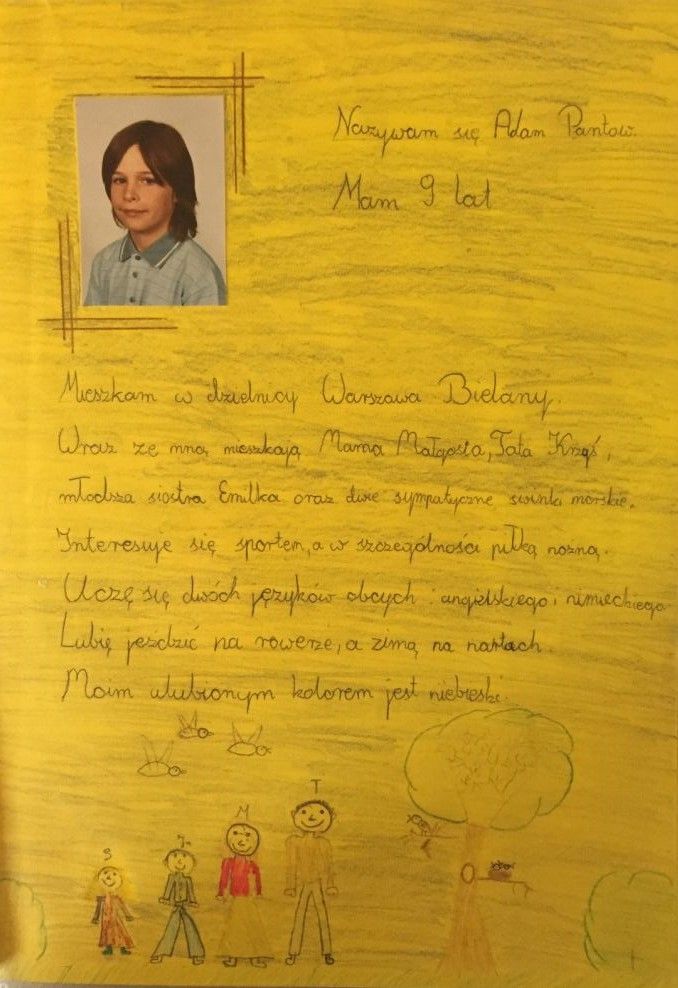 Nazywam się Adam Pantow.
Mam 9 lat
Mieszkam w dzielnicy Warszawa Bielany.
Wraz ze mną mieszkają Mama Małgosia, Tata Krzyś,
młodsza siostra Emilka oraz dwie sympatyczne świnki morskie.
Interesuje się sportem, a w szczególności piłką nożną.
Uczę się dwóch języków obcych: angielskiego i nimieckiego
Lubię jeździć na rowerze, a zimą na nartach.
Moim ulubionym kolorem jest niebieski.
S J M T